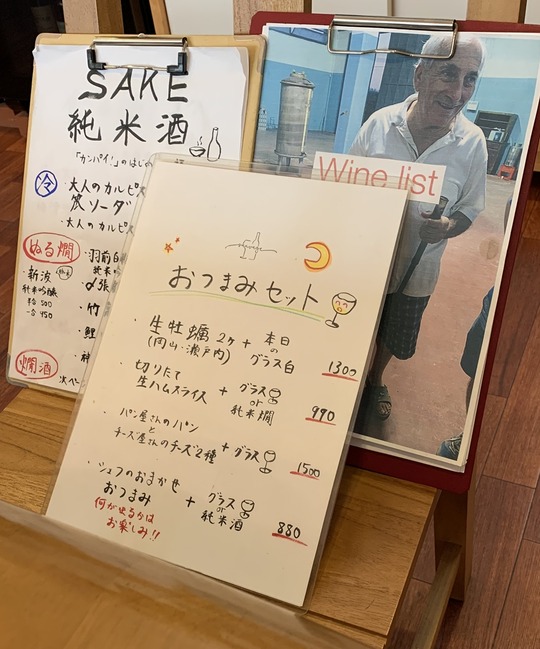 SAKE
純米酒
「カンパイ!」のはじめ
冷
・大人のカルピス
ソーダ
・大人のカルピ
ぬる燗
・羽前
・新波
純米吟醸
半合 500
一合 950
・〆張
・竹
・鯉
・神
燗酒
次ペー
Wine list
おつまみセット
・生牡蠣 2ヶ + 本日のグラス白 1300
(岡山・瀬戸内)
・切りたて
生ハムスライス + グラス or 純米燗 990
・パン屋さんのパン
と
チーズ屋さんのチーズ2種 + グラス 1500
・シェフのおまかせ
おつまみ + グラス or 純米酒 880
何が出るかは
お楽しみ!!